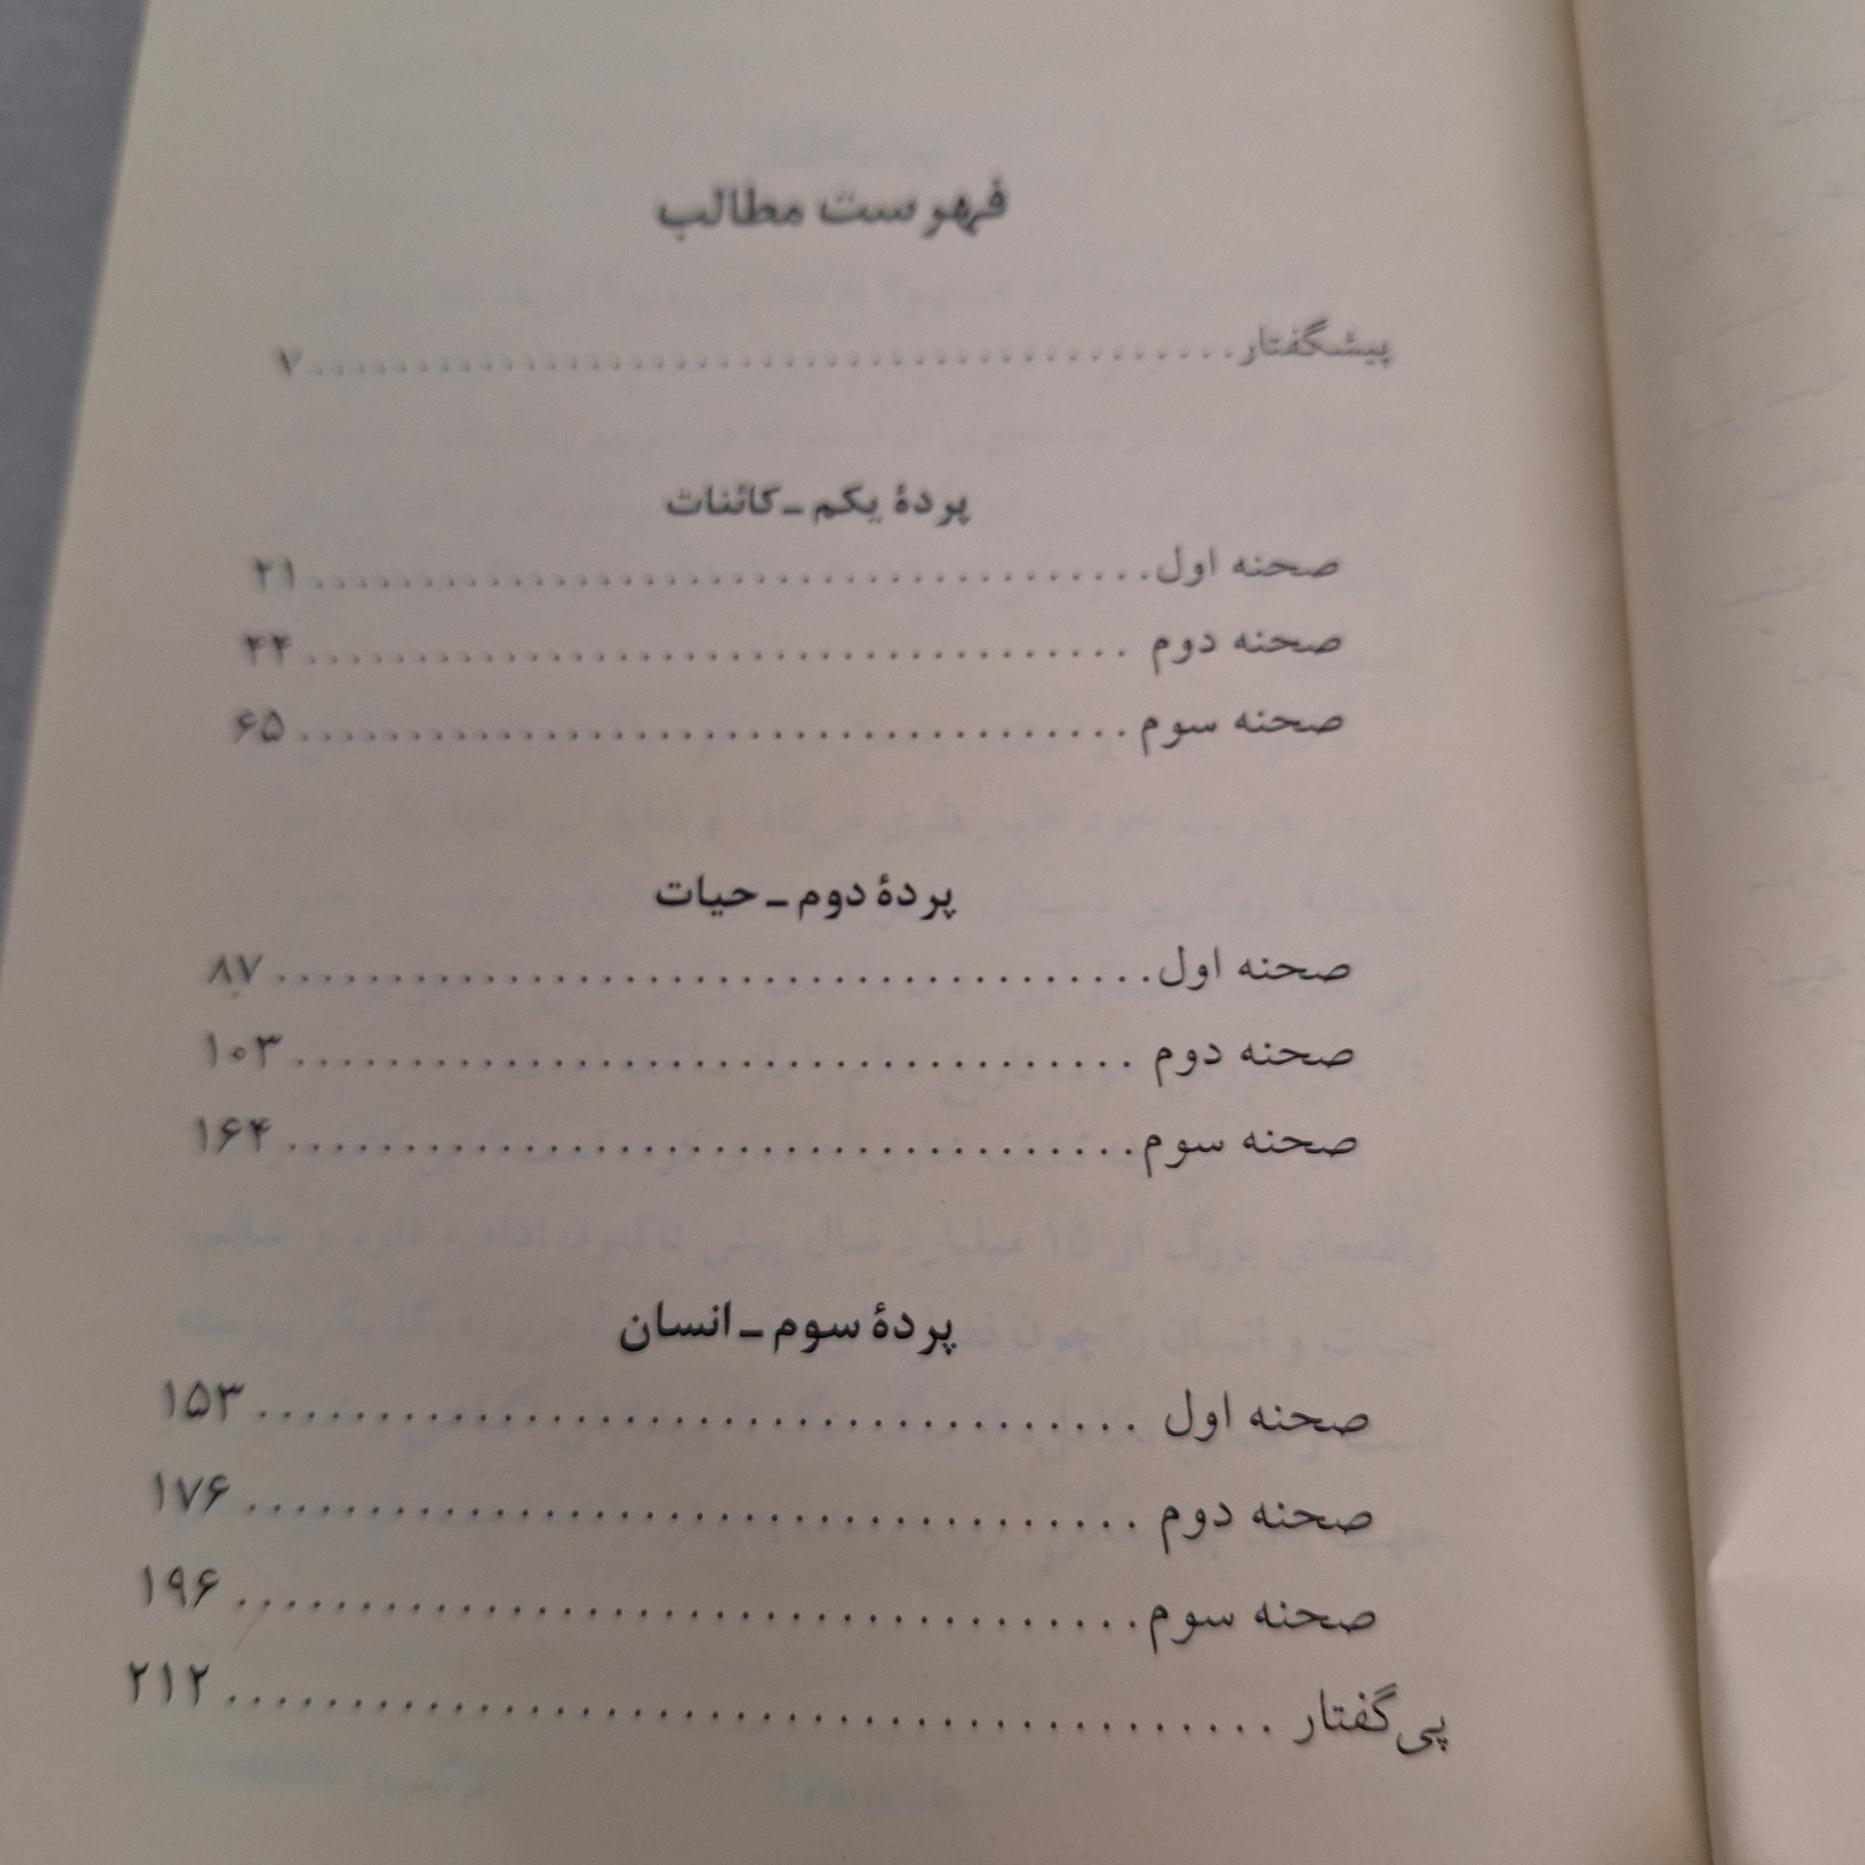 فهرست مطالب
پیشگفتار........................................۷
پردهٔ یکم ـ کائنات
صحنه اول........................................۲۱
صحنه دوم ........................................۴۴
صحنه سوم........................................۶۵
پردهٔ دوم ـ حیات
صحنه اول........................................۸۷
صحنه دوم ........................................۱۰۳
صحنه سوم........................................۱۶۴
پردهٔ سوم ـ انسان
صحنه اول ........................................۱۵۳
صحنه دوم ........................................۱۷۶
صحنه سوم........................................۱۹۶
پی‌گفتار ........................................۲۱۲